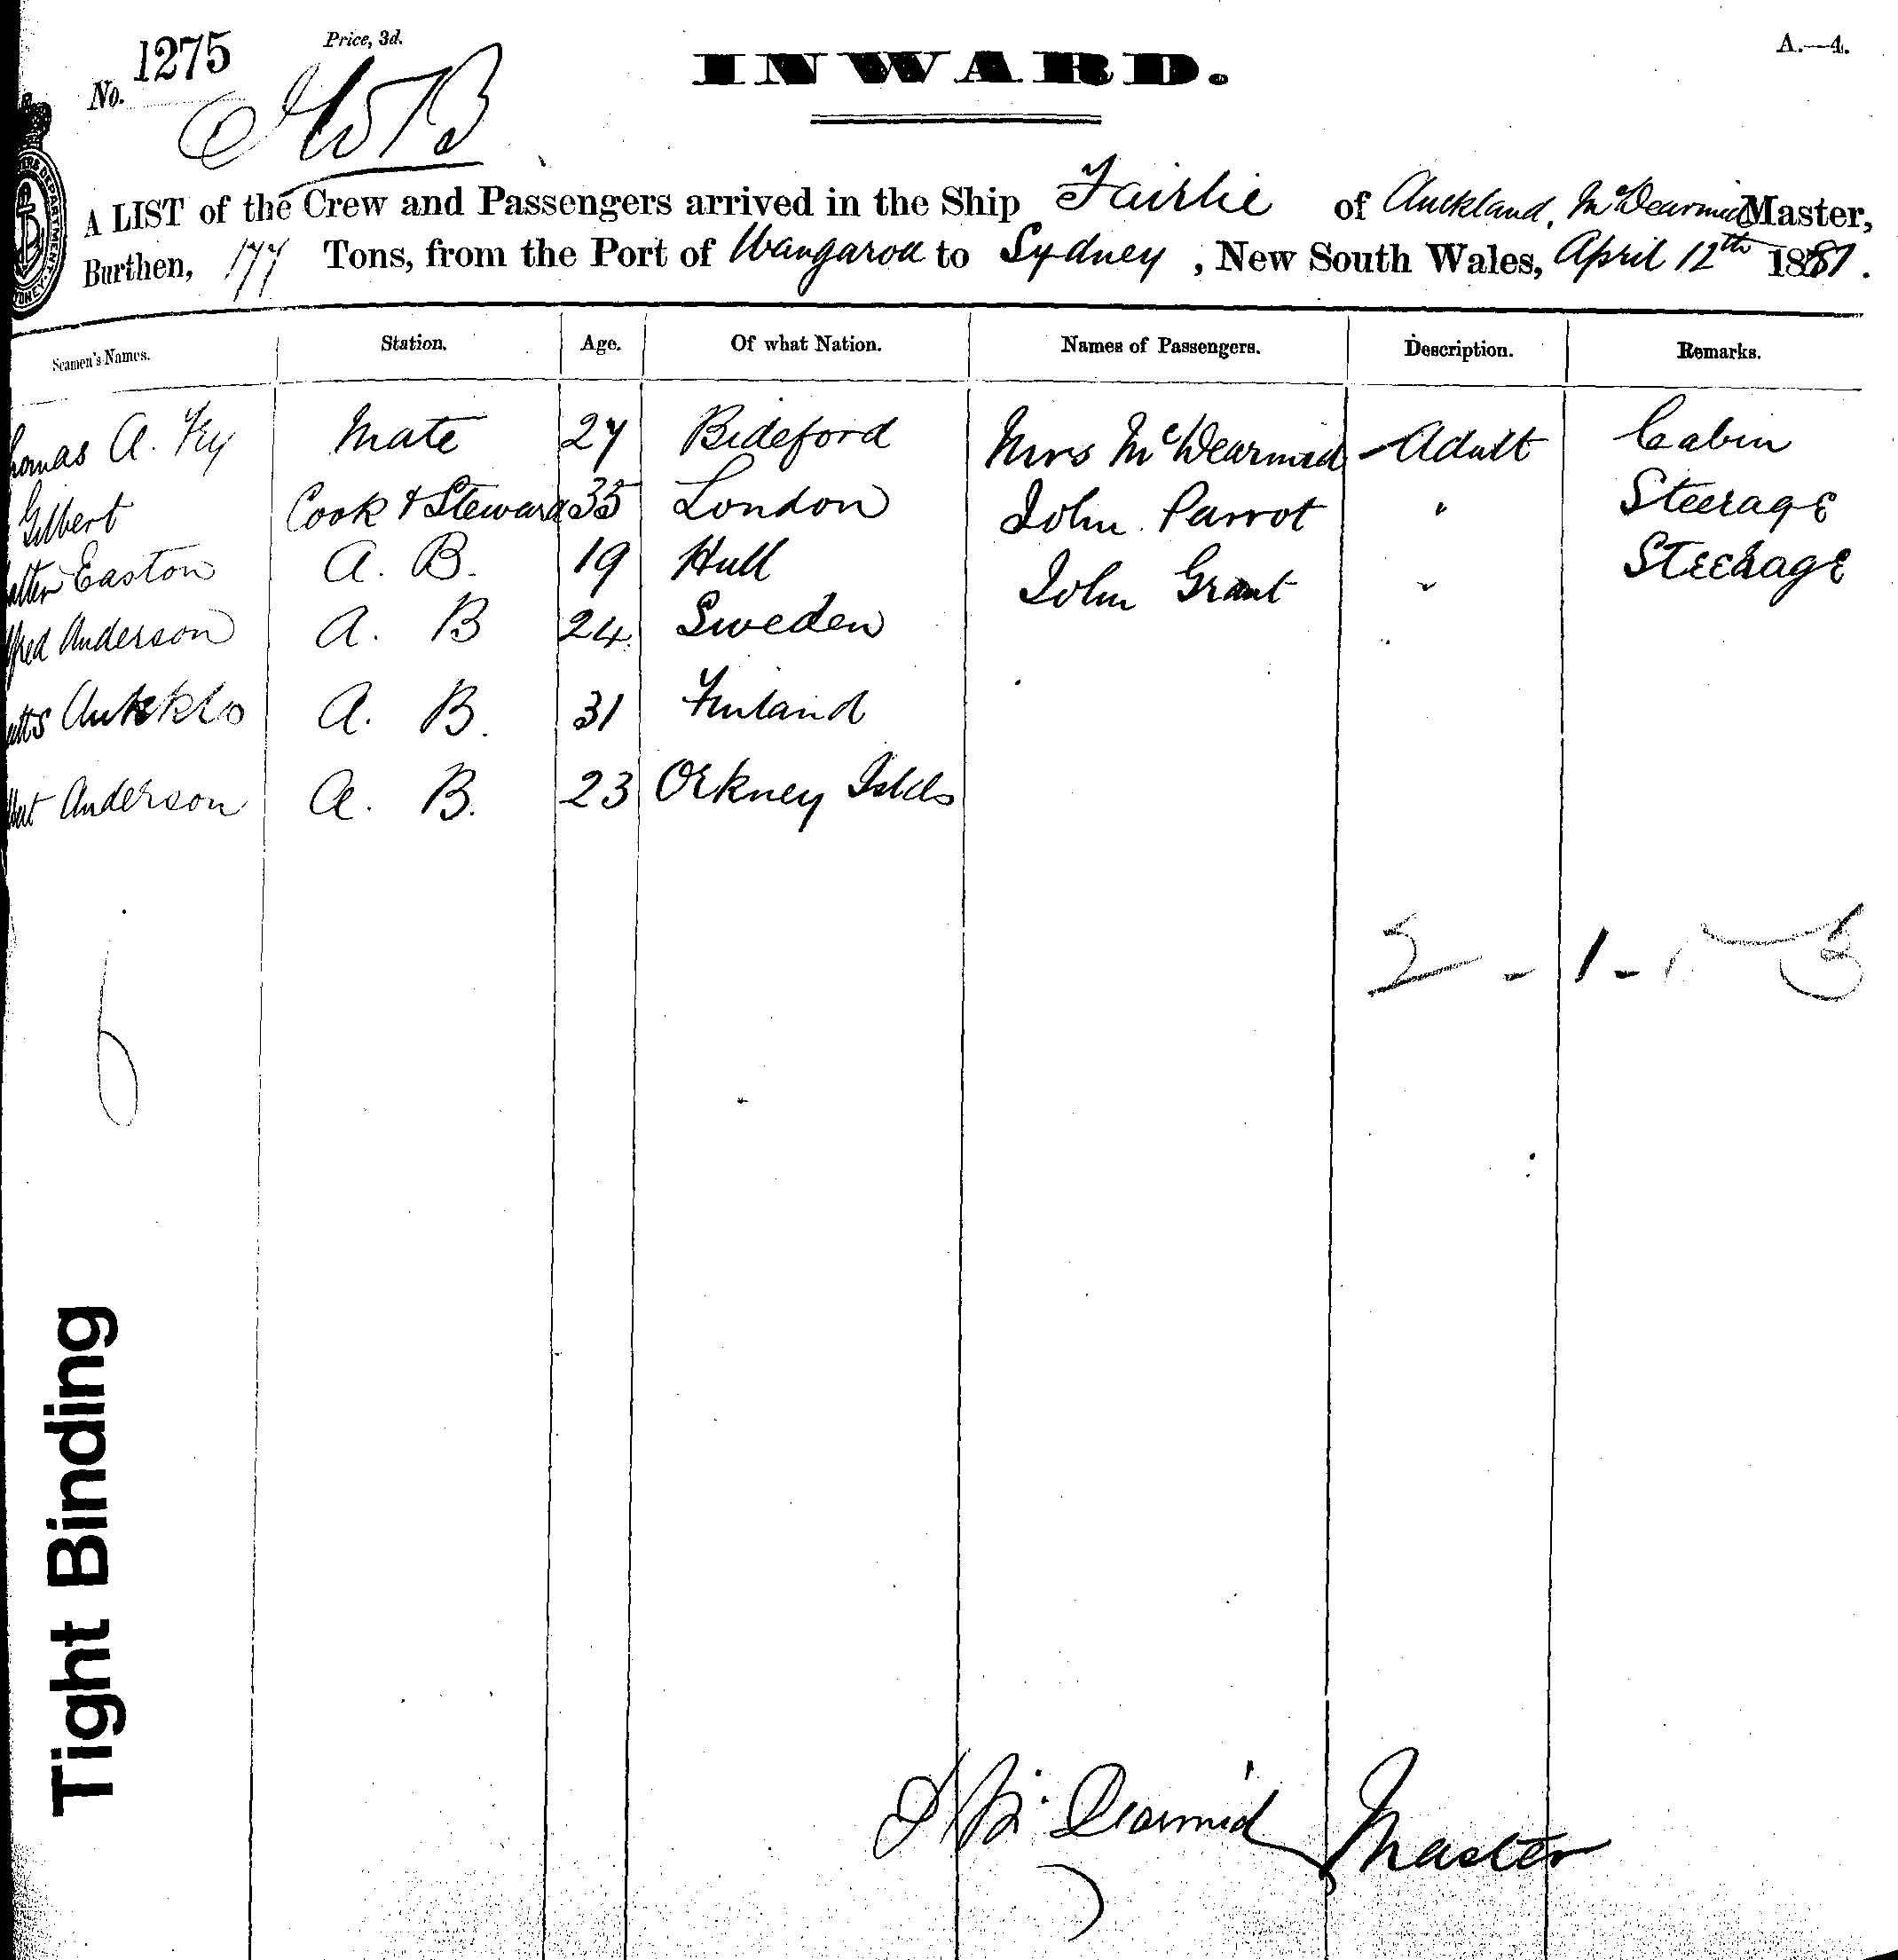 No. 1275
Price, 3d.
INWARD.
A.—4.
A LIST of the Crew and Passengers arrived in the Ship Fairlie of Auckland, McDearmid Master,
Burthen, 177 Tons, from the Port of Wangaroa to Sydney, New South Wales, April 12th 1881.
Seamen's Names. Station. Age. Of what Nation. Names of Passengers. Description. Remarks.
homas A. Fry Mate 27 Bideford Mrs McDearmid Adult Cabin
Gilbert Cook & Steward 35 London John Parrot " Steerage
alter Easton A. B. 19 Hull John Grant " Steerage
fred Anderson A. B 24 Sweden
atts A. B. 31 Finland
Anderson A. B. 23 Orkney Islds
6
2 - 1 - 3
McDearmid Master
Tight Binding